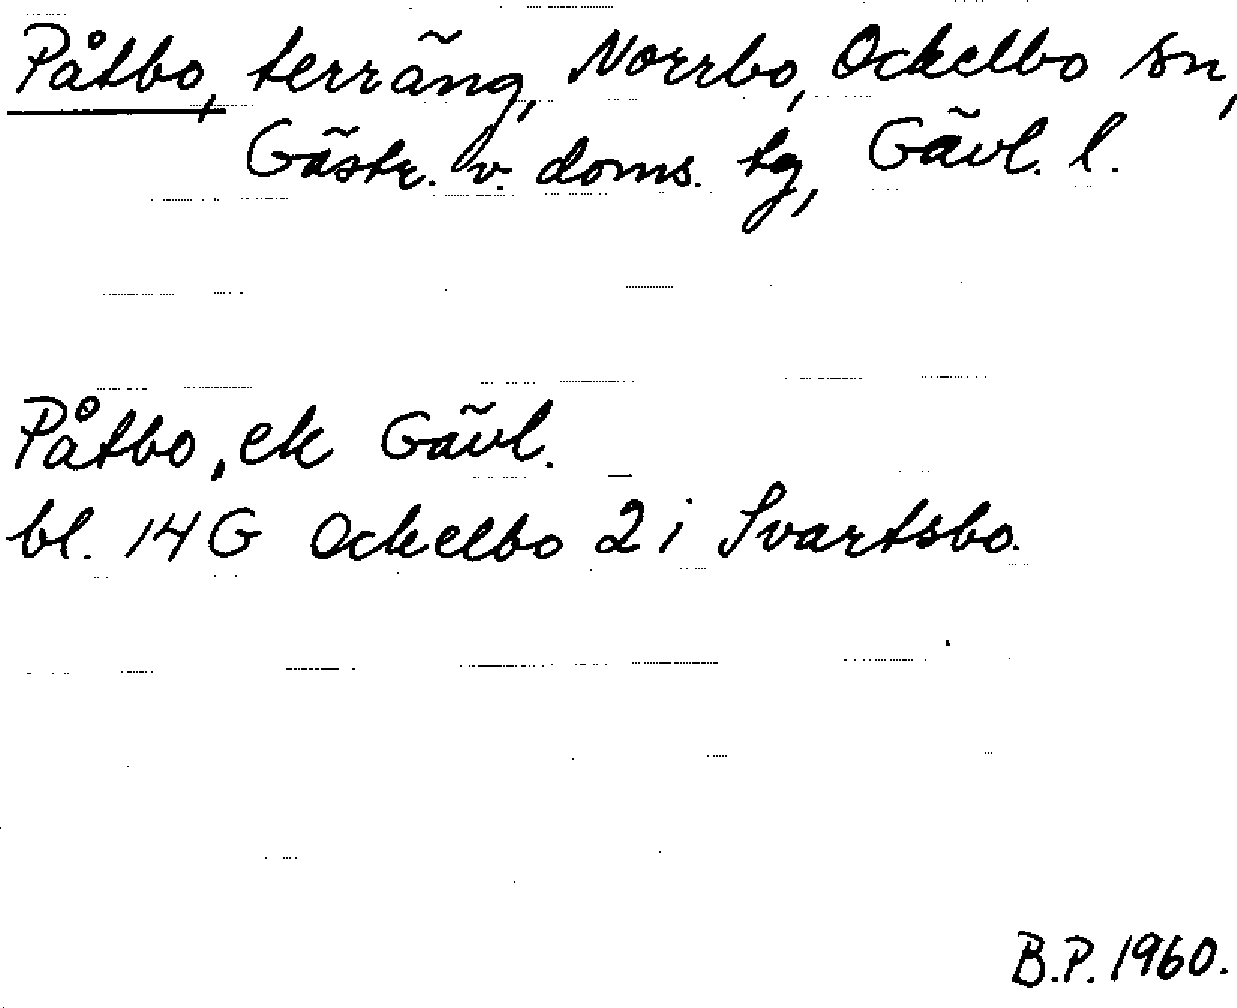 Påtbo, terräng, Norrbo, Ockelbo sn,
Gästr. v. doms. tg, Gävl. l.
Påtbo, ek Gävl.
bl. 14G Ockelbo 2i Svartsbo.
B.P. 1960.